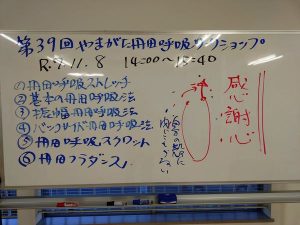 第39回やまがた丹田呼吸ワークショップ
R.7.11.8 14:00〜15:40
①丹田呼吸ストレッチ
②基本の丹田呼吸法
③振幅丹田呼吸法
④バンクハイ丹田呼吸法
⑤丹田呼吸スクワット
⑥丹田フラダンス
感謝心